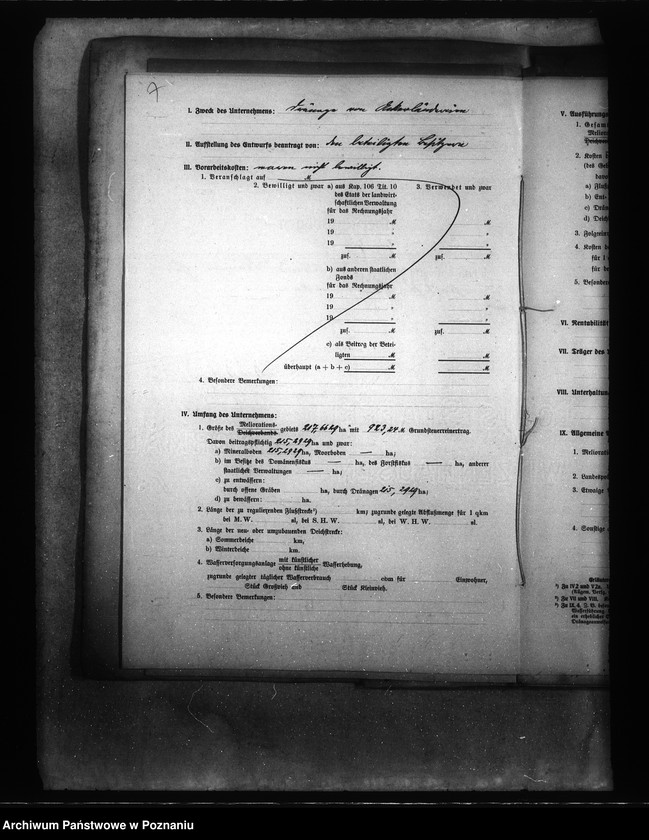 I. Zweck des Unternehmens: Dränage von Ackerländereien
II. Aufstellung des Entwurfs beantragt von: den beteiligten Besitzern
III. Vorarbeitskosten: waren nicht bewilligt.
1. Veranschlagt auf M
2. Bewilligt und zwar a) aus Kap. 106 Tit. 10 3. Verwendet und zwar
des Etats der landwirt-
schaftlichen Verwaltung
für das Rechnungsjahr
19 M M
19 " "
19 " "
zus. M zus. M
b) aus anderen staatlichen
Fonds
für das Rechnungsjahr
19 M M
19 " "
19 " "
zus. M zus. M
c) als Beitrag der Betei-
ligten M M
überhaupt (a + b + c) M M
4. Besondere Bemerkungen:
IV. Umfang des Unternehmens:
1. Größe des Meliorations-
Deichverbands-gebiets ha mit 923,24 M Grundsteuerreinertrag.
Davon beitragspflichtig 215,2929 ha und zwar:
a) Mineralboden 215,2929 ha, Moorboden — ha;
b) im Besitze des Domänenfiskus — ha, des Forstfiskus — ha, anderer
staatlicher Verwaltungen — ha;
c) zu entwässern:
durch offene Gräben ha, durch Dränagen 215,2929 ha;
d) zu bewässern: ha.
2. Länge der zu regulierenden Flußstrecke¹) km; zugrunde gelegte Abflußmenge für 1 qkm
bei M. W. sl, bei S. H. W. sl, bei W. H. W. sl.
3. Länge der neu- oder umzubauenden Deichstrecke:
a) Sommerdeiche km,
b) Winterdeiche km.
4. Wasserversorgungsanlage mit künstlicher
ohne künstliche Wasserhebung,
zugrunde gelegter täglicher Wasserverbrauch cbm für Einwohner,
Stück Großvieh und Stück Kleinvieh.
5. Besondere Bemerkungen:
V. Ausführungs
1. Gesamt
Melior
2. Kosten
(des Ge
davon
a) Fluß
b) Ent-
c) Drän
d) Deich
3. Folgeeinr
4. Kosten d
für 1
für de
5. Besonder
VI. Rentabilität
VII. Träger des
VIII. Unterhaltung
IX. Allgemeine
1. Melior
2. Landespo
3. Etwaige
4. Sonstige
Archiwum Państwowe w Poznaniu